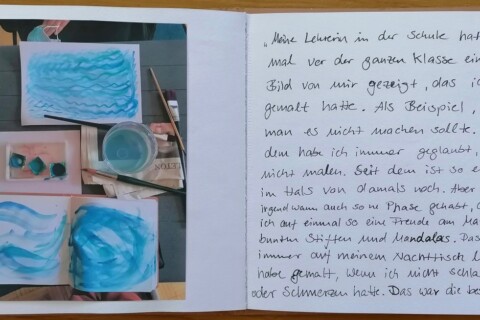 „Meine Lehrerin in der Schule hat
mal vor der ganzen Klasse ein
Bild von mir gezeigt, das ic
gemalt hatte. Als Beispiel,
man es nicht machen sollte.
dem habe ich immer geglaubt,
nicht malen. Seit dem ist so e
im Hals von damals noch. Aber
irgendwann auch so ne Phase gehabt,
ich auf einmal so eine Freude am Ma
bunten Stiften und Mandalas. Das
immer auf meinem Nachttisch
habe gemalt, wenn ich nicht schla
oder Schmerzen hatte. Das war die bes